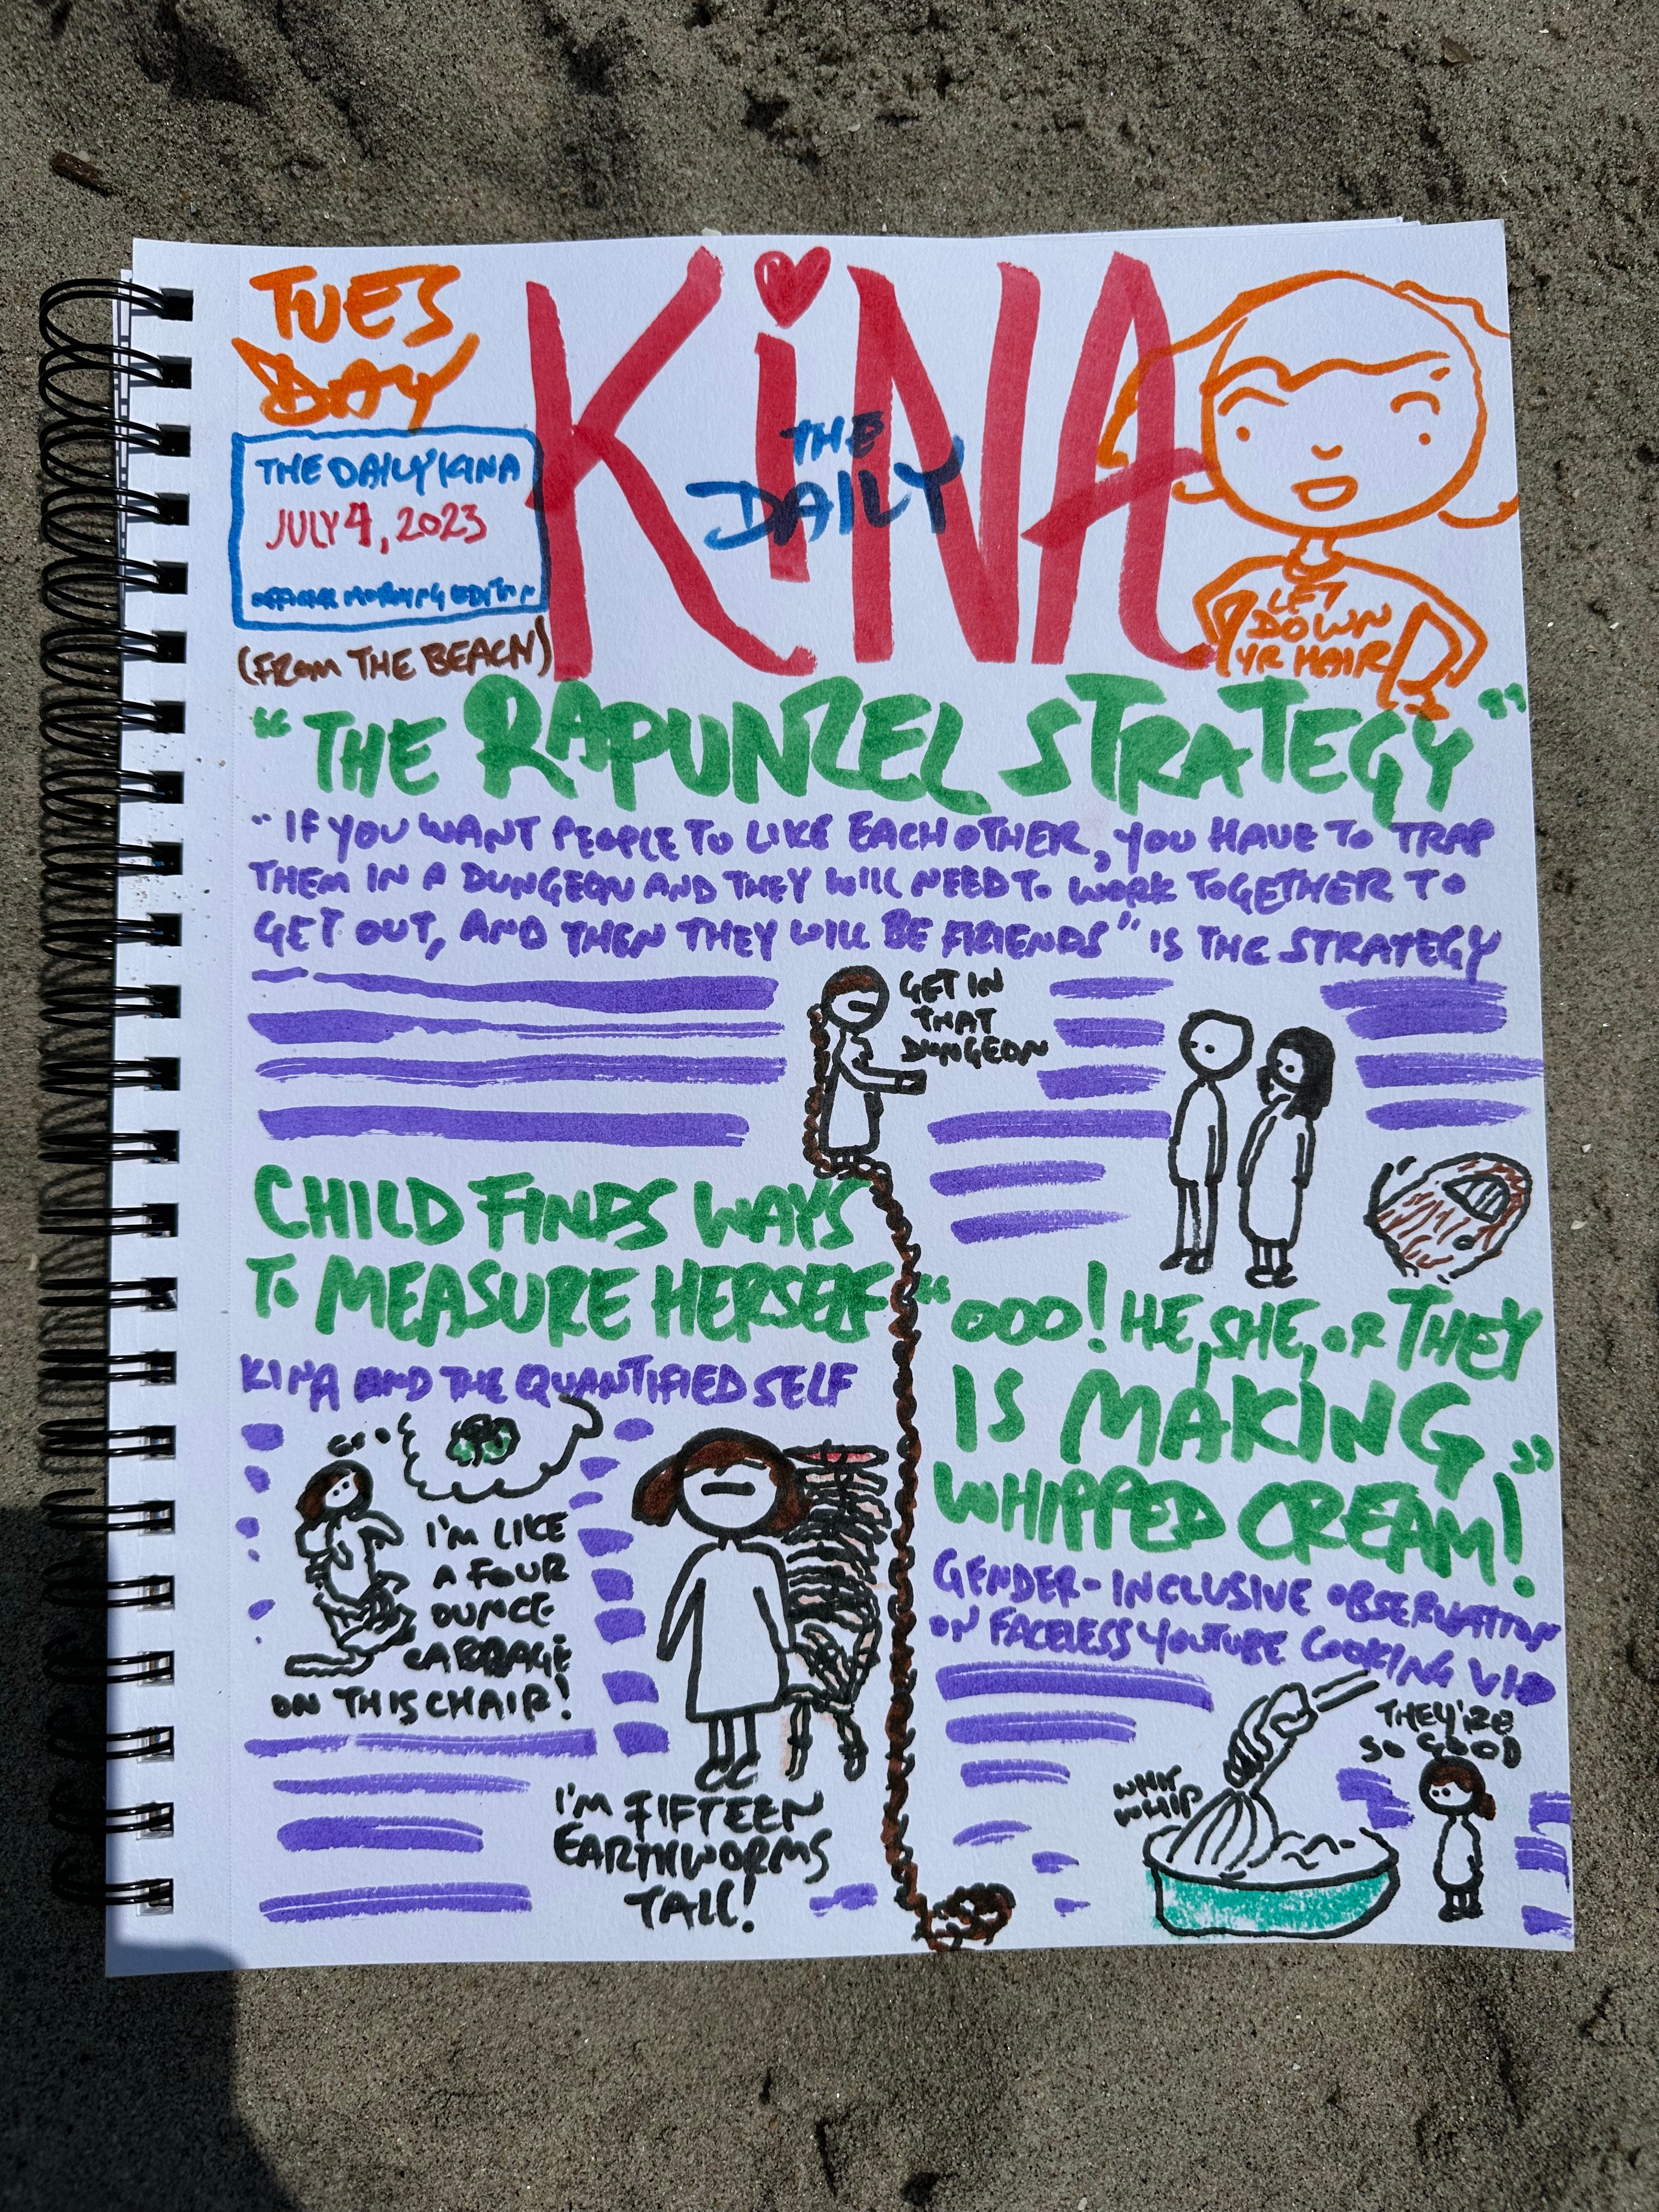 TUES
DAY
THE DAILY KINA
JULY 4, 2023
OFFICIAL MORNING EDITION
(FROM THE BEACH)
KiNA
THE
DAILY
LET
DOWN
YR HAIR
"THE RAPUNZEL STRATEGY"
"IF YOU WANT PEOPLE TO LIKE EACH OTHER, YOU HAVE TO TRAP
THEM IN A DUNGEON AND THEY WILL NEED TO WORK TOGETHER TO
GET OUT, AND THEN THEY WILL BE FRIENDS" IS THE STRATEGY
GET IN
THAT
DUNGEON
CHILD FINDS WAYS
TO MEASURE HERSELF
KINA AND THE QUANTIFIED SELF
I'M LIKE
A FOUR
OUNCE
CABBAGE
ON THIS CHAIR!
I'M FIFTEEN
EARTHWORMS
TALL!
"OOO! HE, SHE, OR THEY
IS MAKING
WHIPPED CREAM!"
GENDER-INCLUSIVE OBSERVATION
ON FACELESS YOUTUBE COOKING VID
THEY'RE
SO GOOD
WHIP
WHIP